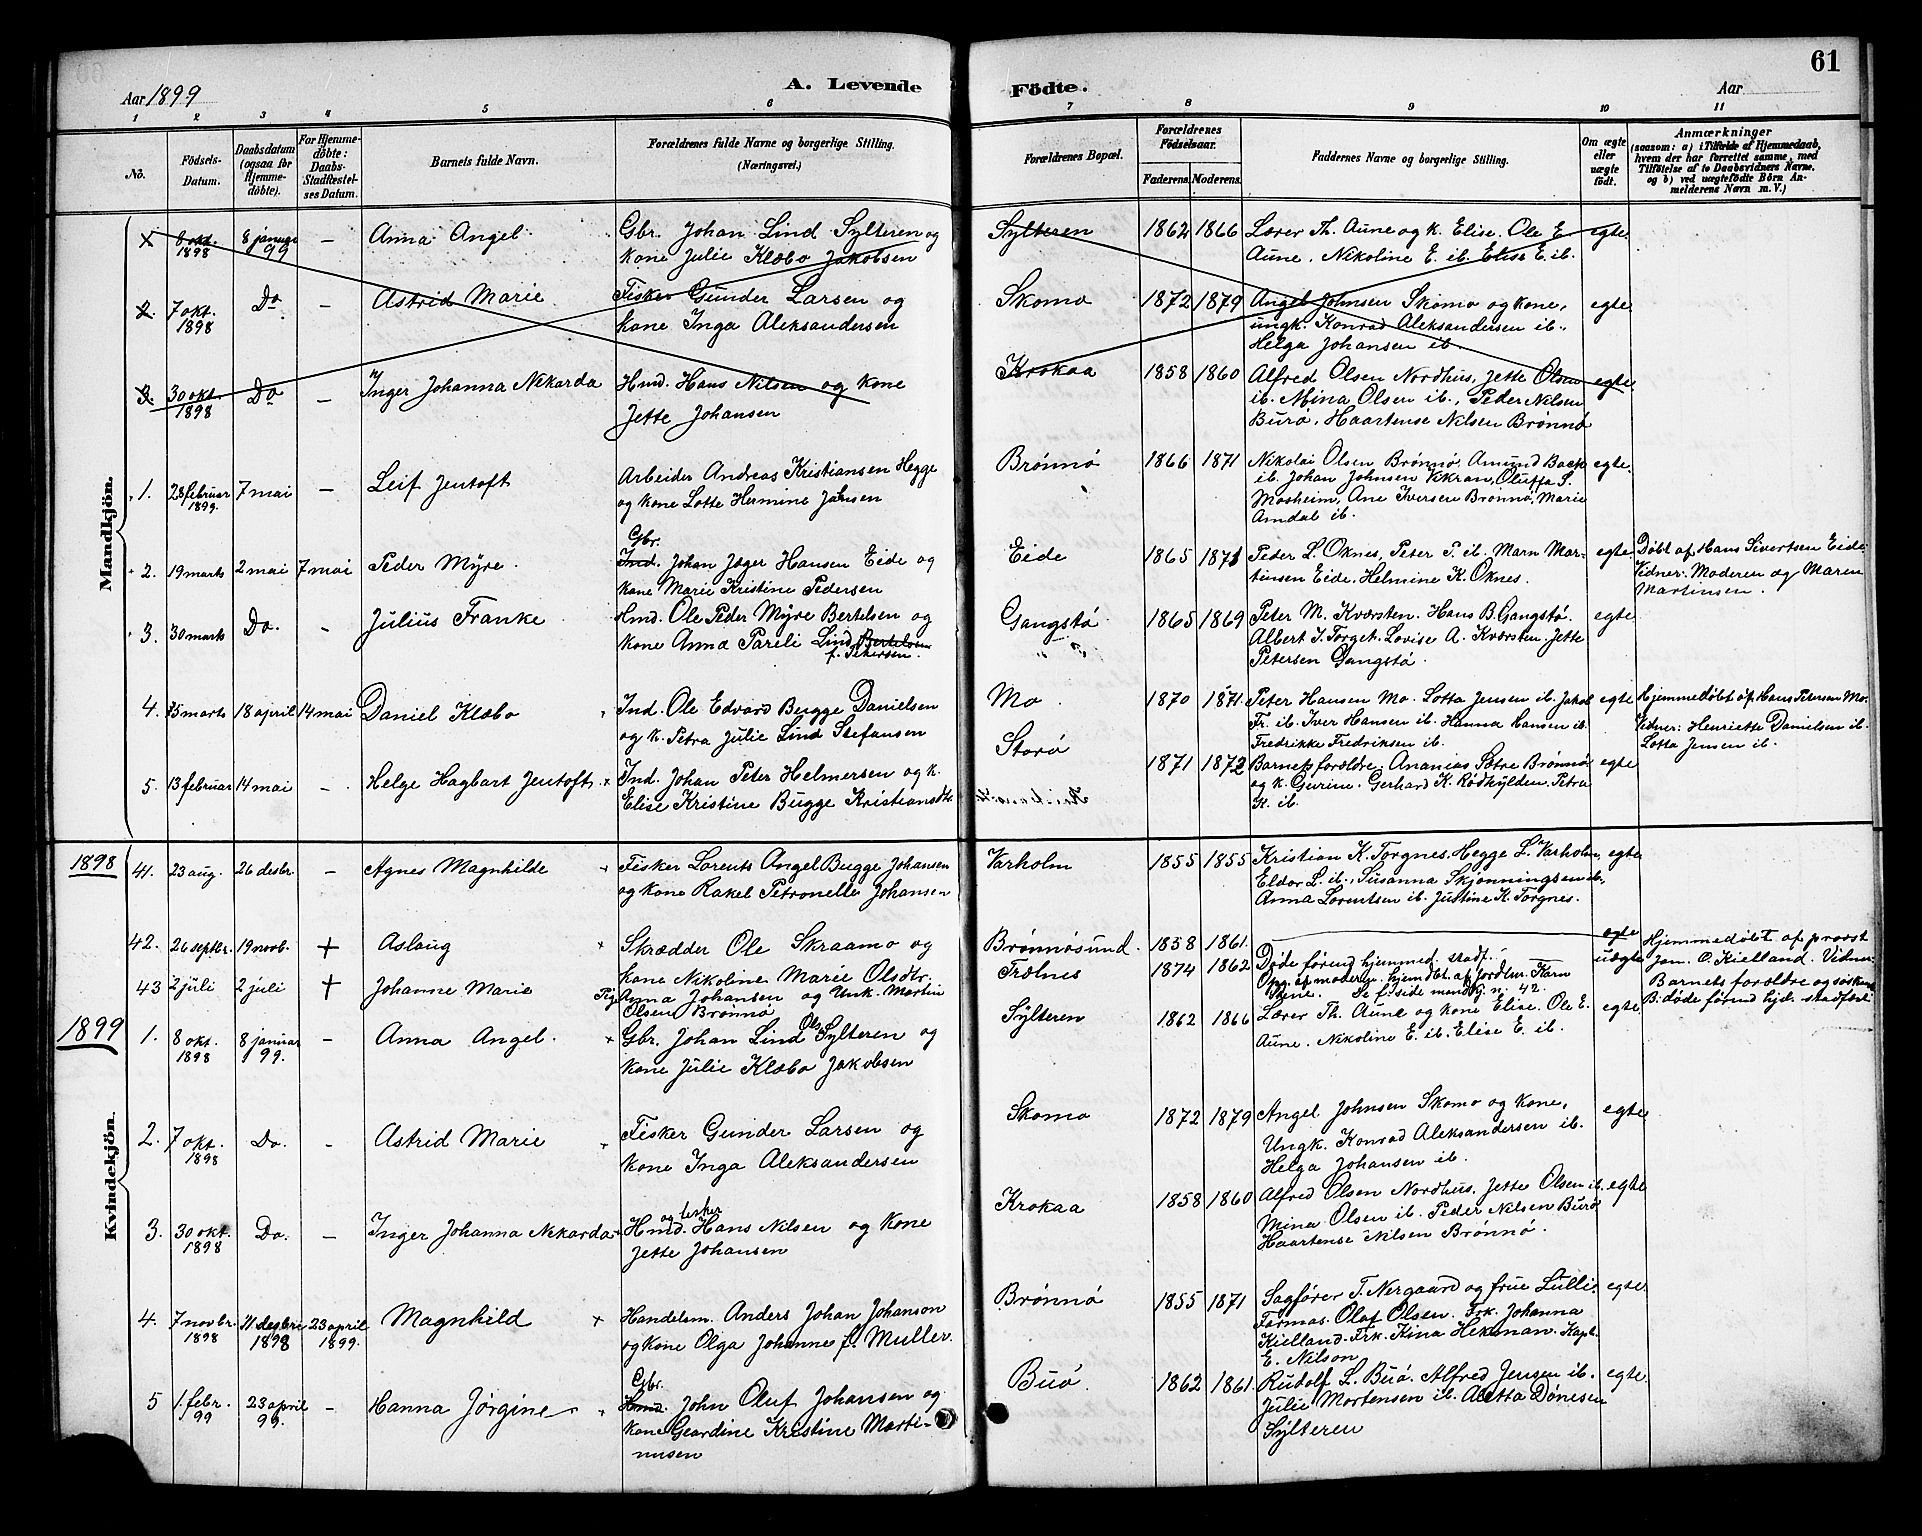 61
Aar 1899 A. Levende Födte. Aar
1 2 3 4 5 6 7 8 9 10 11
No.
Födsels-Datum.
Daabsdatum (ogsaa for Hjemmedöbte).
For Hjemmedöbte: Daabs-Stadfæstelses Datum.
Barnets fulde Navn.
Forældrenes fulde Navne og borgerlige Stilling. (Næringsvei.)
Forældrenes Bopæl.
Forældrenes Födselsaar.
Faderens. Moderens.
Faddernes Navne og borgerlige Stilling.
Om ægte eller uægte födt.
Anmærkninger
(saasom: a) i Tilfælde af Hjemmedaab, hvem der har forrettet samme, med Tilföielse af to Daabsvidners Navne, og b) ved uægtefödte Börn Anmelderens Navn m. V.)
Mandkjön.
8 okt. 1898 8 januar 99 – Anna Angel. Gbr. Johan Lind Sylteren og
kone Julie Klæbo Jakobsen
Sylteren 1862 1866 Lærer Th. Aune og k. Elise. Ole E. egte.
Aune. Nikoline E. ib. Elise E. ib.
2. 7 okt. 1898 Do – Astrid Marie. Fisker Gunder Larsen og
kone Inga Aleksandersen
Skomo 1872 1879 Angel Johnsen Skomo og kone, egte
ungk. Konrad Aleksandersen ib.,
Helga Johansen ib.
3. 30 okt. 1898 Do – Inger Johanna Nekarda Hmd. Hans Nilsen og kone
Jette Johansen
Krokaa 1858 1860 Alfred Olsen Nordhus, Jette Olsen egte
ib. Mina Olsen ib., Peder Nilsen
Burø, Haartense Nilsen Brønnø
1. 28 februar 1899. 7 mai – Leif Jentoft Arbeider Andreas Kristiansen Hegge
og kone Lotte Hermine Jansen
Brønnø 1866 1871 Nikolai Olsen Brønnø, Amund Back egte.
ib. Johan Johnsen Vikran, Oluffa S.
Mosheim, Ane Iversen Brønnø, Marie
Amdal ib.
2. 19 marts 2 mai 7 mai Peder Myre. Gbr. Ind. Johan Jæger Hansen Eide og
kone Marie Kristine Pedersen
Eide 1865 1871 Peder L. Oknes, Peter P. ib. Marn Mar- egte
tinsen Eide. Helmine K. Oknes.
Døbt af Hans Sivertsen Eide.
Vidner: Moderen og Maren
Martinsen.
3. 30 marts Do. – Julius Franke Hmd. Ole Peder Myre Bertelsen og
kone Anna Pareli Lind Bertelsen
f. Petersen.
Gangstø 1865 1869 Peter M. Kværsten. Hans B. Gangstø. egte
Albert J. Torget. Lovise A. Kværsten, Jette
Petersen Gangstø
4. 15 marts 18 april 14 mai Daniel Klæbo Ind. Ole Edvard Bugge Danielsen
og k. Petra Julie Lind Stefansen
Mo 1870 1871 Peter Hansen Mo. Lotta Jensen ib. Jakob egte
Fr. ib. Iver Hansen ib. Hanna Hansen ib.
Fredrikke Fredriksen ib.
Hjemmedøbt af Hans Petersen Mo.
Vidner: Henriette Danielsen ib.
Lotta Jensen ib.
5. 13 februar 14 mai – Helge Hagbart Jentoft Ind. Johan Peter Helmersen og k.
Elise Kristine Bugge Kristiansdt.
Storø 1871 1872 Barnets foreldre. Ananias Sætre Brønnø egte
og k. Gurine. Gerhard K. Rødhylden. Petra
K. ib.
1898
41. 23 aug. 26 desbr. – Agnes Magnhilde Fisker Lorents Angel Bugge Johansen
og kone Rakel Petronelle Johansen
Varholm 1855 1855 Kristian K. Torgnes, Hegge L. Varholm, egte
Eldor L. ib., Susanna Skjønningsen ib.,
Anna Lorentsen ib. Justine K. Torgnes.
42. 26 septbr. 19 novb. + Aslaug Skrædder Ole Skraamo og
kone Nikoline Marie Olsdtr.
Brønnøsund. 1858 1861. egte
Døde førend hjemmed. stadf.
Hjemmedøbt af provst
Jan. C. Kielland. Vidner
Barnets foreldre og søsken
B: døde førend hjd. stadfest.
43 2 juli 2 juli + Johanne Marie Pige Anna Johansen og Unk. Martin
Olsen Brønnø
Trælnes 1874 1862 uegte
Opg. af moderen hjemdbt. af jordmr. Karn
Stene. Se f. side mandkj. n. 42.
1899
Kvindekjön.
1. 8 okt. 1898 8 januar 99. – Anna Angel. Gbr. Johan Lind Ols. Sylteren og
kone Julie Klæbo Jakobsen
Sylteren 1862 1866 Lærer Th. Aune og kone Elise. Ole E. egte
Aune. Nikoline E. ib. Elise E. ib.
2. 7 okt. 1898 Do. – Astrid Marie Fisker Gunder Larsen og
kone Inga Aleksandersen
Skomo 1872 1879 Angel Johnsen Skomo og kone, egte
Ungk. Konrad Aleksandersen ib.
Helga Johansen ib.
3. 30 okt. 1898 Do. – Inger Johanna Nekarda og fisker Hmd. Hans Nilsen og kone
Jette Johansen
Krokaa 1858 1860 Alfred Olsen Nordhus, Jette Olsen ib. egte
Mina Olsen ib. Peder Nilsen Burø
Haartense Nilsen Brønnø.
4. 7 novbr. 1898 11 desbr 1898 23 april 1899. Magnhild Handelsm. Anders Johan Johanson
og kone Olga Johanne f. Muller.
Brønnø 1855 1871 Sagfører T. Nergaard og frue Lulli. egte.
Firmas. Olaf Olsen. Frk. Johanna
Kielland. Frk. Kina Hekman. Kapt.
E. Nilson
5 1. febr. 99 23 april 99. – Hanna Jørgine Gbr. Hmd. John Oluf Johansen og
kone Geardine Kristine Marti-
nusen
Buø. 1862 1861 Rudolf L. Buø. Alfred Jensen ib. egte.
Julie Mortensen ib. Aletta Dønesen
Sylteren